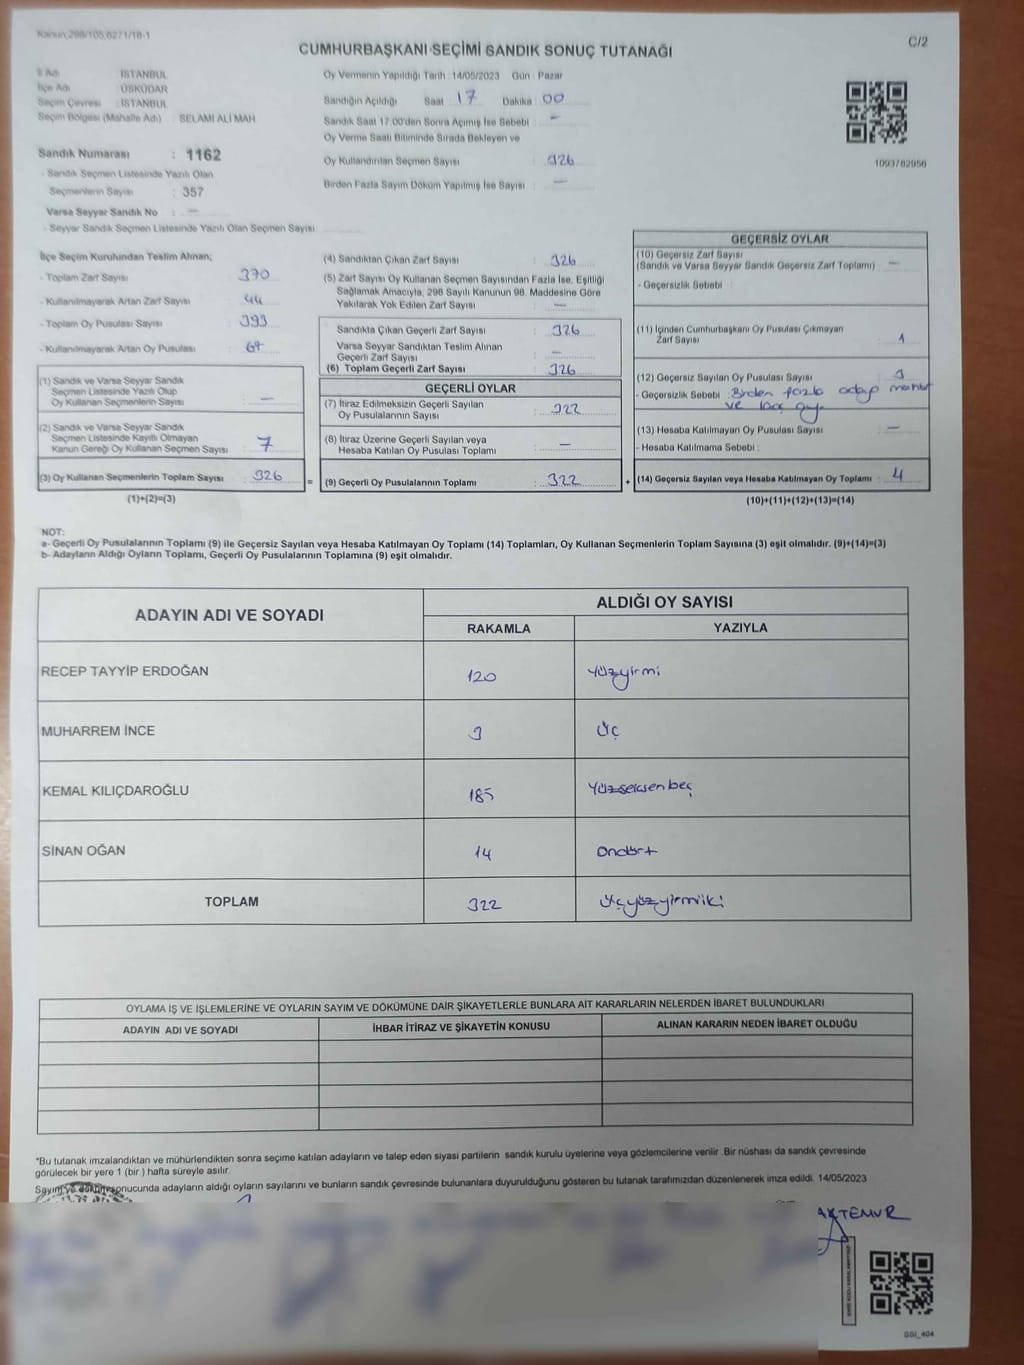 Kanun,298/105,6271/18-1
C/2
CUMHURBAŞKANI SEÇİMİ SANDIK SONUÇ TUTANAĞI
İl Adı : İSTANBUL
İlçe Adı : ÜSKÜDAR
Seçim Çevresi : İSTANBUL
Seçim Bölgesi (Mahalle Adı) : SELAMİ ALİ MAH
Sandık Numarası : 1162
- Sandık Seçmen Listesinde Yazılı Olan
Seçmenlerin Sayısı : 357
Varsa Seyyar Sandık No : —
- Seyyar Sandık Seçmen Listesinde Yazılı Olan Seçmen Sayısı :
Oy Vermenin Yapıldığı Tarih : 14/05/2023 Gün : Pazar
Sandığın Açıldığı Saat : 17 Dakika : 00
Sandık Saat 17:00'den Sonra Açımış İse Sebebi : —
Oy Verme Saati Bitiminde Sırada Bekleyen ve
Oy Kullandırılan Seçmen Sayısı : 326
Birden Fazla Sayım Döküm Yapılmış İse Sayısı : —
1093782956
İlçe Seçim Kurulundan Teslim Alınan;
- Toplam Zarf Sayısı : 370
- Kullanılmayarak Artan Zarf Sayısı : 44
- Toplam Oy Pusulası Sayısı : 393
- Kullanılmayarak Artan Oy Pusulası : 67
(1) Sandık ve Varsa Seyyar Sandık
Seçmen Listesinde Yazılı Olup
Oy Kullanan Seçmenlerin Sayısı : —
(2) Sandık ve Varsa Seyyar Sandık
Seçmen Listesinde Kayıtlı Olmayan
Kanun Gereği Oy Kullanan Seçmen Sayısı : 7
(3) Oy Kullanan Seçmenlerin Toplam Sayısı : 326
(1)+(2)=(3)
(4) Sandıktan Çıkan Zarf Sayısı : 326
(5) Zarf Sayısı Oy Kullanan Seçmen Sayısından Fazla İse, Eşitliği
Sağlamak Amacıyla, 298 Sayılı Kanunun 98. Maddesine Göre
Yakılarak Yok Edilen Zarf Sayısı : —
Sandıkta Çıkan Geçerli Zarf Sayısı : 326
Varsa Seyyar Sandıktan Teslim Alınan
Geçerli Zarf Sayısı : —
(6) Toplam Geçerli Zarf Sayısı : 326
GEÇERLİ OYLAR
(7) İtiraz Edilmeksizin Geçerli Sayılan
Oy Pusulalarının Sayısı : 322
(8) İtiraz Üzerine Geçerli Sayılan veya
Hesaba Katılan Oy Pusulası Toplamı : —
= (9) Geçerli Oy Pusulalarının Toplamı : 322 +
GEÇERSİZ OYLAR
(10) Geçersiz Zarf Sayısı
(Sandık ve Varsa Seyyar Sandık Geçersiz Zarf Toplamı) : —
- Geçersizlik Sebebi :
(11) İçinden Cumhurbaşkanı Oy Pusulası Çıkmayan
Zarf Sayısı : 1
(12) Geçersiz Sayılan Oy Pusulası Sayısı : 3
- Geçersizlik Sebebi : Birden fazla aday
ve boş oy
(13) Hesaba Katılmayan Oy Pusulası Sayısı : —
- Hesaba Katılmama Sebebi :
(14) Geçersiz Sayılan veya Hesaba Katılmayan Oy Toplamı : 4
(10)+(11)+(12)+(13)=(14)
NOT:
a- Geçerli Oy Pusulalarının Toplamı (9) ile Geçersiz Sayılan veya Hesaba Katılmayan Oy Toplamı (14) Toplamları, Oy Kullanan Seçmenlerin Toplam Sayısına (3) eşit olmalıdır. (9)+(14)=(3)
b- Adayların Aldığı Oyların Toplamı, Geçerli Oy Pusulalarının Toplamına (9) eşit olmalıdır.
ADAYIN ADI VE SOYADI
ALDIĞI OY SAYISI
RAKAMLA YAZIYLA
RECEP TAYYİP ERDOĞAN 120 Yüzyirmi
MUHARREM İNCE 3 Üç
KEMAL KILIÇDAROĞLU 185 Yüzseksenbeş
SİNAN OĞAN 14 Ondört
TOPLAM 322 Üçyüzyirmiiki
OYLAMA İŞ VE İŞLEMLERİNE VE OYLARIN SAYIM VE DÖKÜMÜNE DAİR ŞİKAYETLERLE BUNLARA AİT KARARLARIN NELERDEN İBARET BULUNDUKLARI
ADAYIN ADI VE SOYADI İHBAR İTİRAZ VE ŞİKAYETİN KONUSU ALINAN KARARIN NEDEN İBARET OLDUĞU
*Bu tutanak imzalandıktan ve mühürlendikten sonra seçime katılan adayların ve talep eden siyasi partilerin sandık kurulu üyelerine veya gözlemcilerine verilir .Bir nüshası da sandık çevresinde
görülecek bir yere 1 (bir ) hafta süreyle asılır.
Sayım ve döküm sonucunda adayların aldığı oyların sayılarını ve bunların sandık çevresinde bulunanlara duyurulduğunu gösteren bu tutanak tarafımızdan düzenlenerek imza edildi. 14/05/2023
AKTEMUR
SSI_404